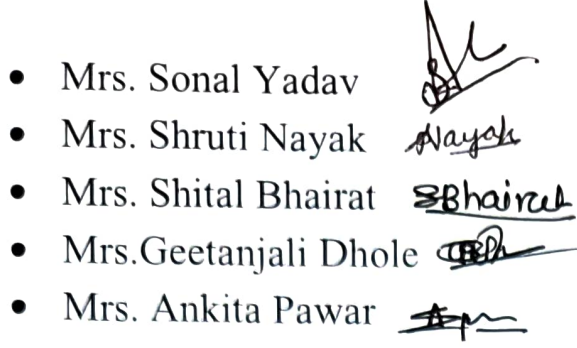 • Mrs. Sonal Yadav
• Mrs. Shruti Nayak Nayak
• Mrs. Shital Bhairat SBhairat
• Mrs.Geetanjali Dhole
• Mrs. Ankita Pawar